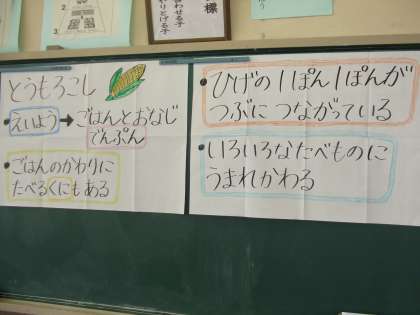 様
とうもろこし
えいよう→ごはんとおなじ
でんぷん
ごはんのかわりに
たべるくにもある
ひげの1ぽん1ぽんが
つぶにつながっている
いろいろなたべものに
うまれかわる